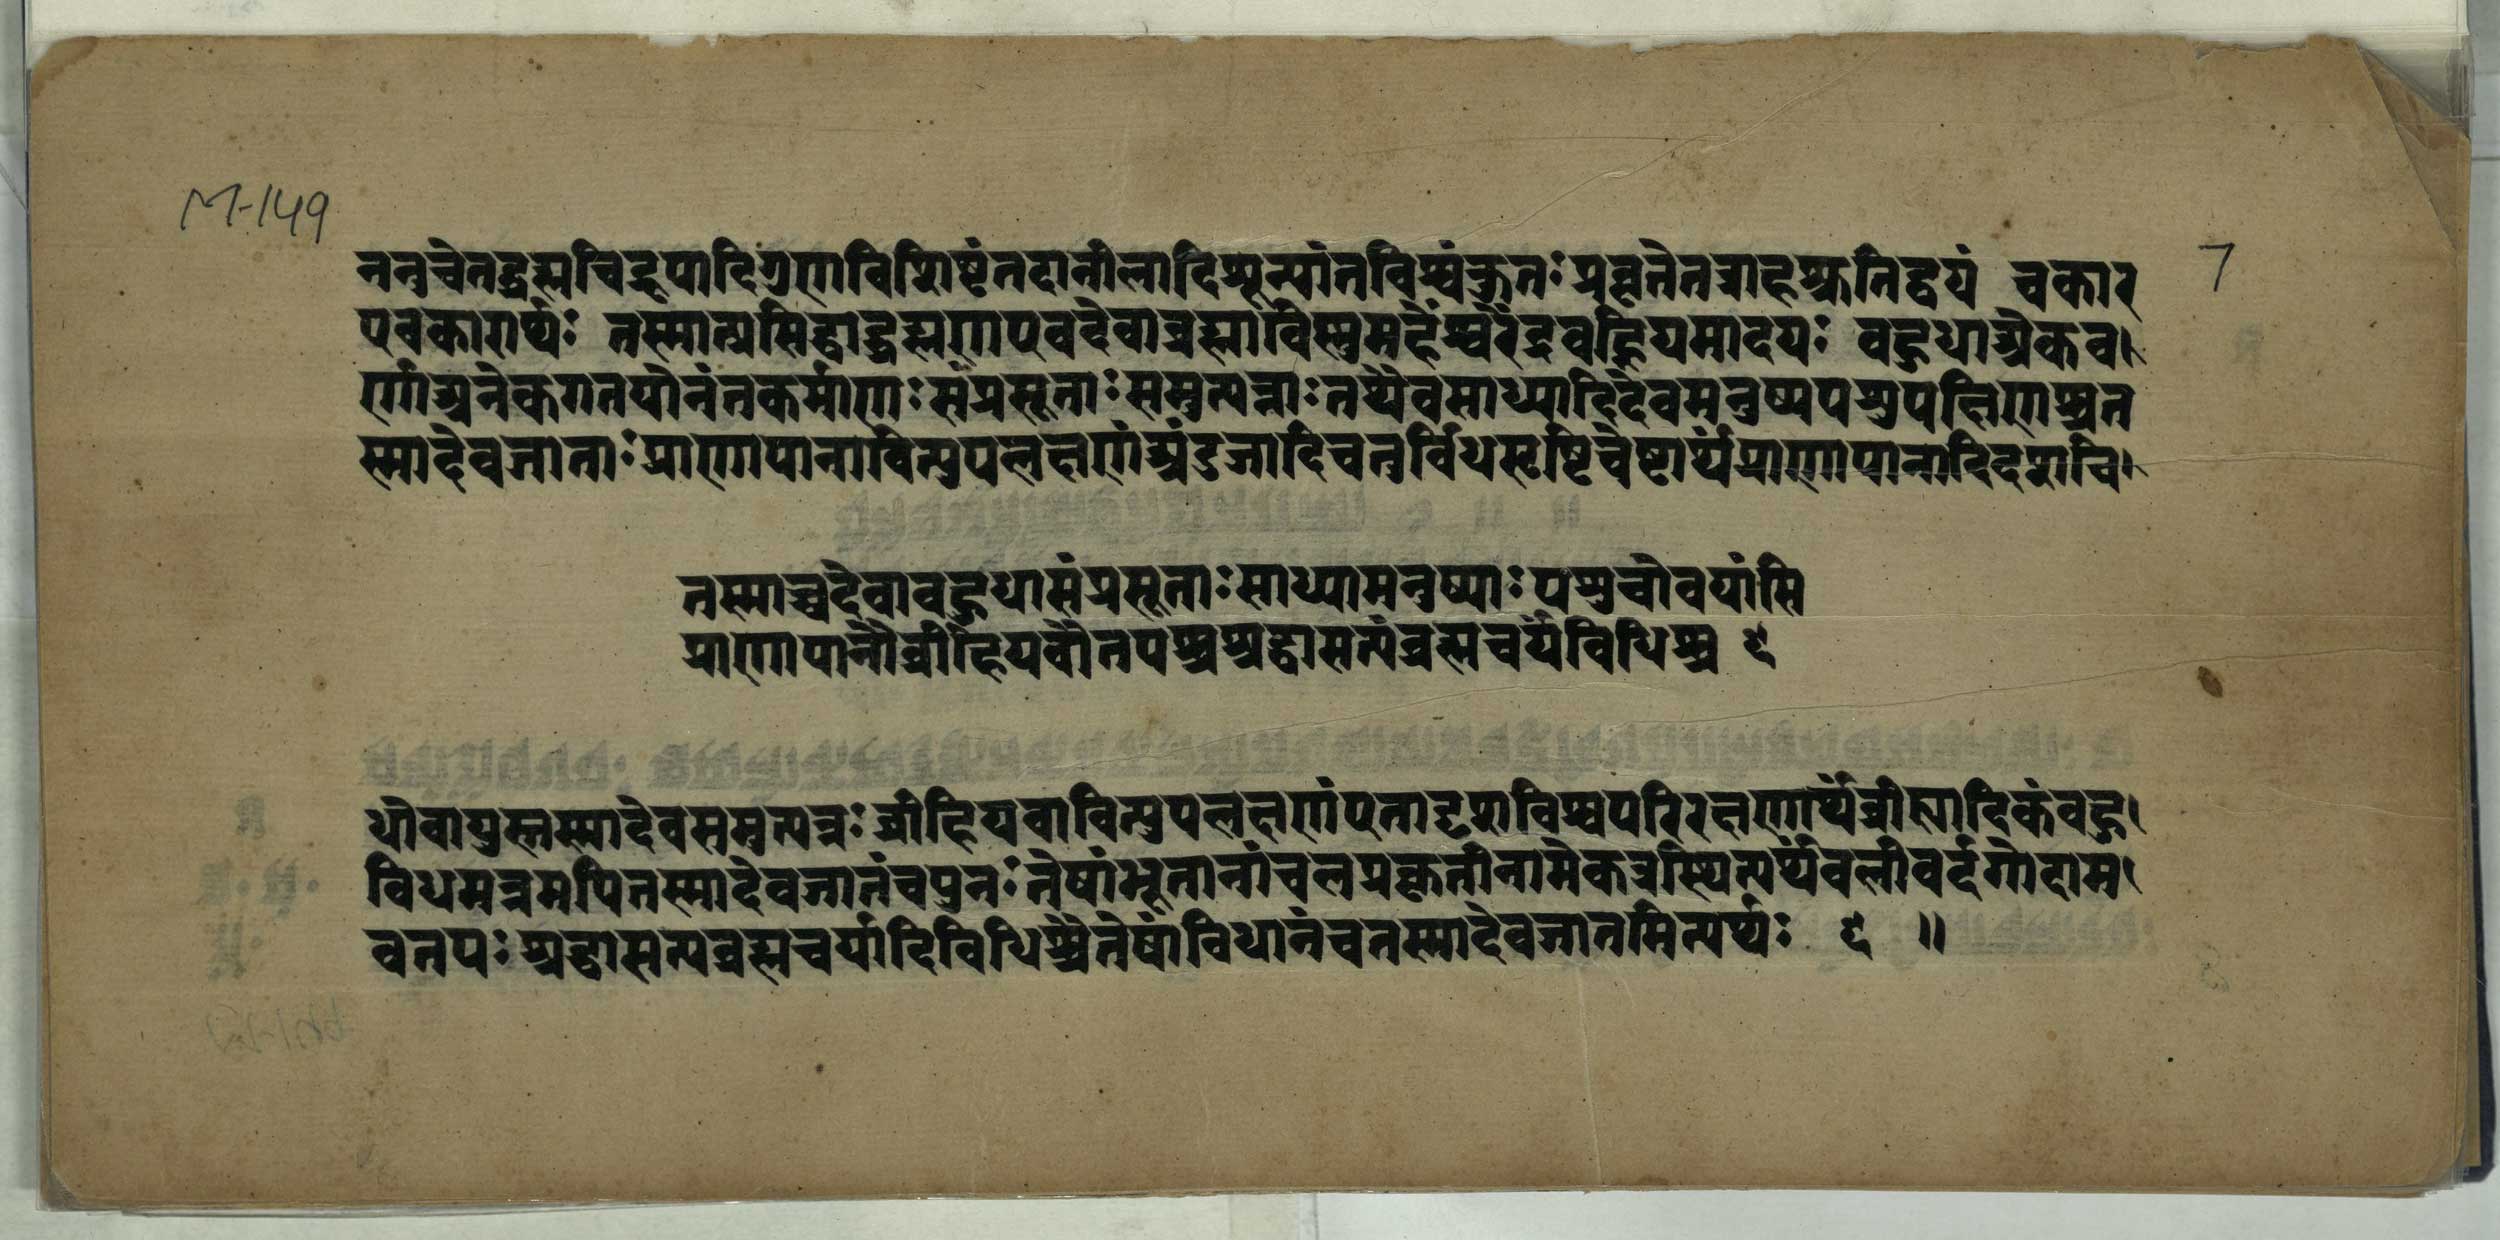 M-149
7
ननुचेतद्ब्रह्मचिद्रूपादिगुणविशिष्टंतदानीलादिशून्यांतविश्वंकुतः प्रवृत्तेतत्राहश्रुतिद्वयं चकार
एवकारार्थः तस्मात्प्रसिद्धाद्ब्रह्मणएवदेवाब्रह्माविस्नुमहेश्वरेंद्रवह्नियमादयः वहुधाअेकव।
र्णाअनेकगतयोनंतकर्माणः संप्रसूताः समुत्पन्नाः तथैवसाध्यादिदेवमनुष्यपशुपक्षिणश्चत
स्मादेवजाताः प्राणापानावित्युपलक्षणंअंडजादिचतुर्विधसृष्टिचेष्टार्थंप्राणापानादिदशवि।
तस्माच्चदेवावहुधासंप्रसूताः साध्यामनुष्याः पशुचोवयांसि
प्राणापानौव्रीहियवौतपश्चश्रद्धासत्यंब्रह्मचर्यंविधिश्च ९
धोवायुस्तस्मादेवसमुत्पन्नः व्रीहियवावित्युपलक्षणंएतादृशविश्वपरिरक्षणार्थंव्रीह्यादिकंवहु।
विधमन्नमपितस्मादेवजातंचपुनः तेषांभूतानांचलप्रकृतीनामेकत्रस्थित्यर्थंवलीवर्दगोदाम।
वतपः श्रद्धासत्यब्रह्मचर्यादिविधिश्चैतेषांविधानंचतस्मादेवजातमित्यर्थः ९ ॥